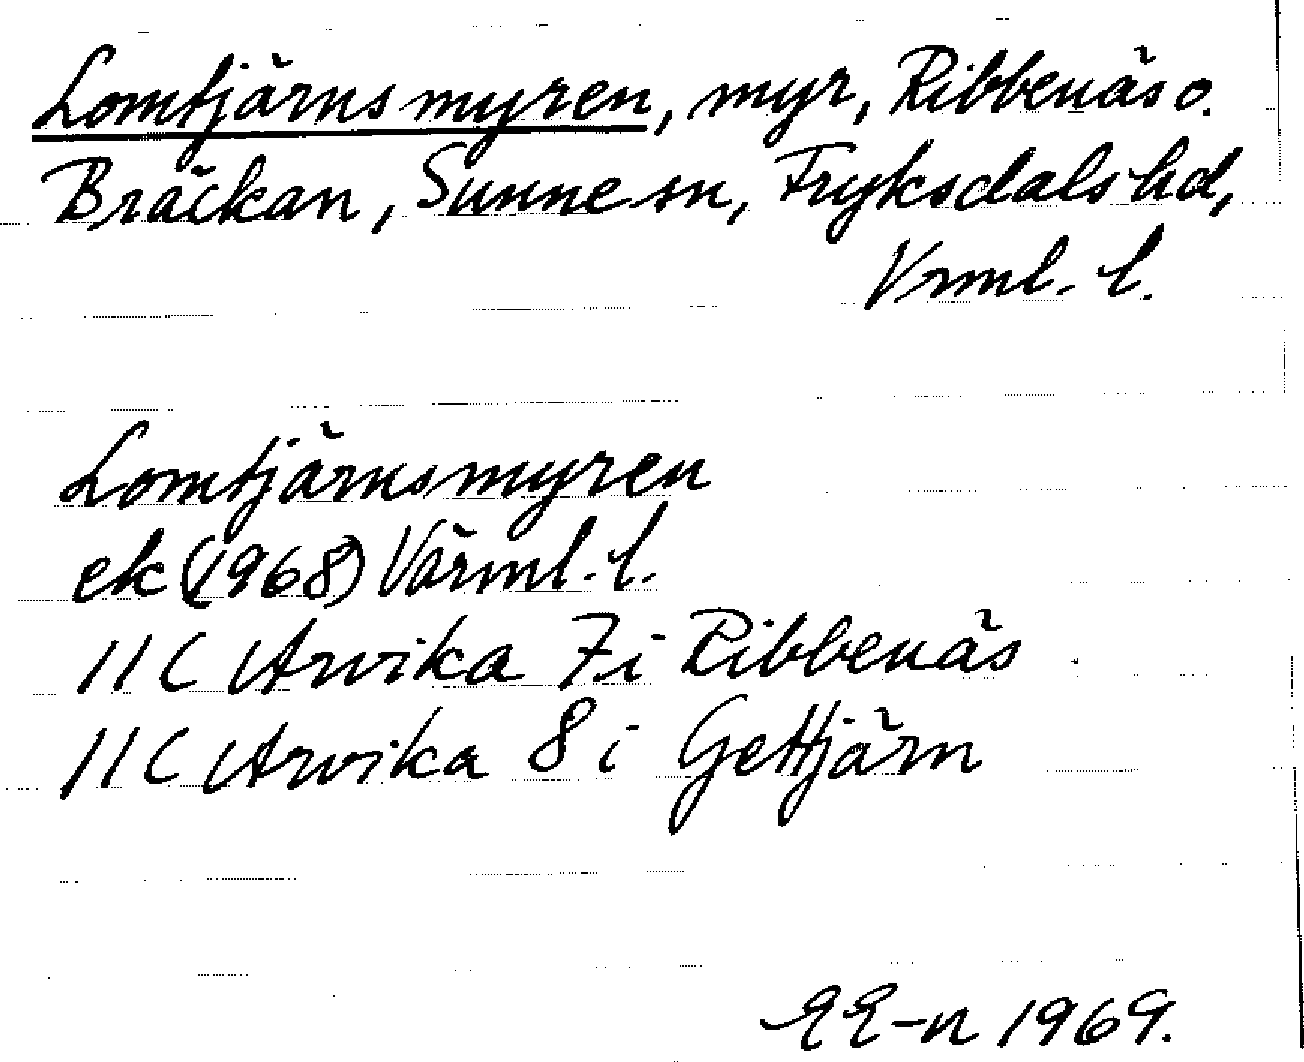 Lomtjärnsmyren, myr, Ribbenäs o.
Bräckan, Sunne sn, Fryksdals hd,
Vrml. l.
Lomtjärnsmyren
ek (1968) Värml. l.
11C Arvika 7i Ribbenäs
11C Arvika 8i Gettjärn
EE-n 1969.